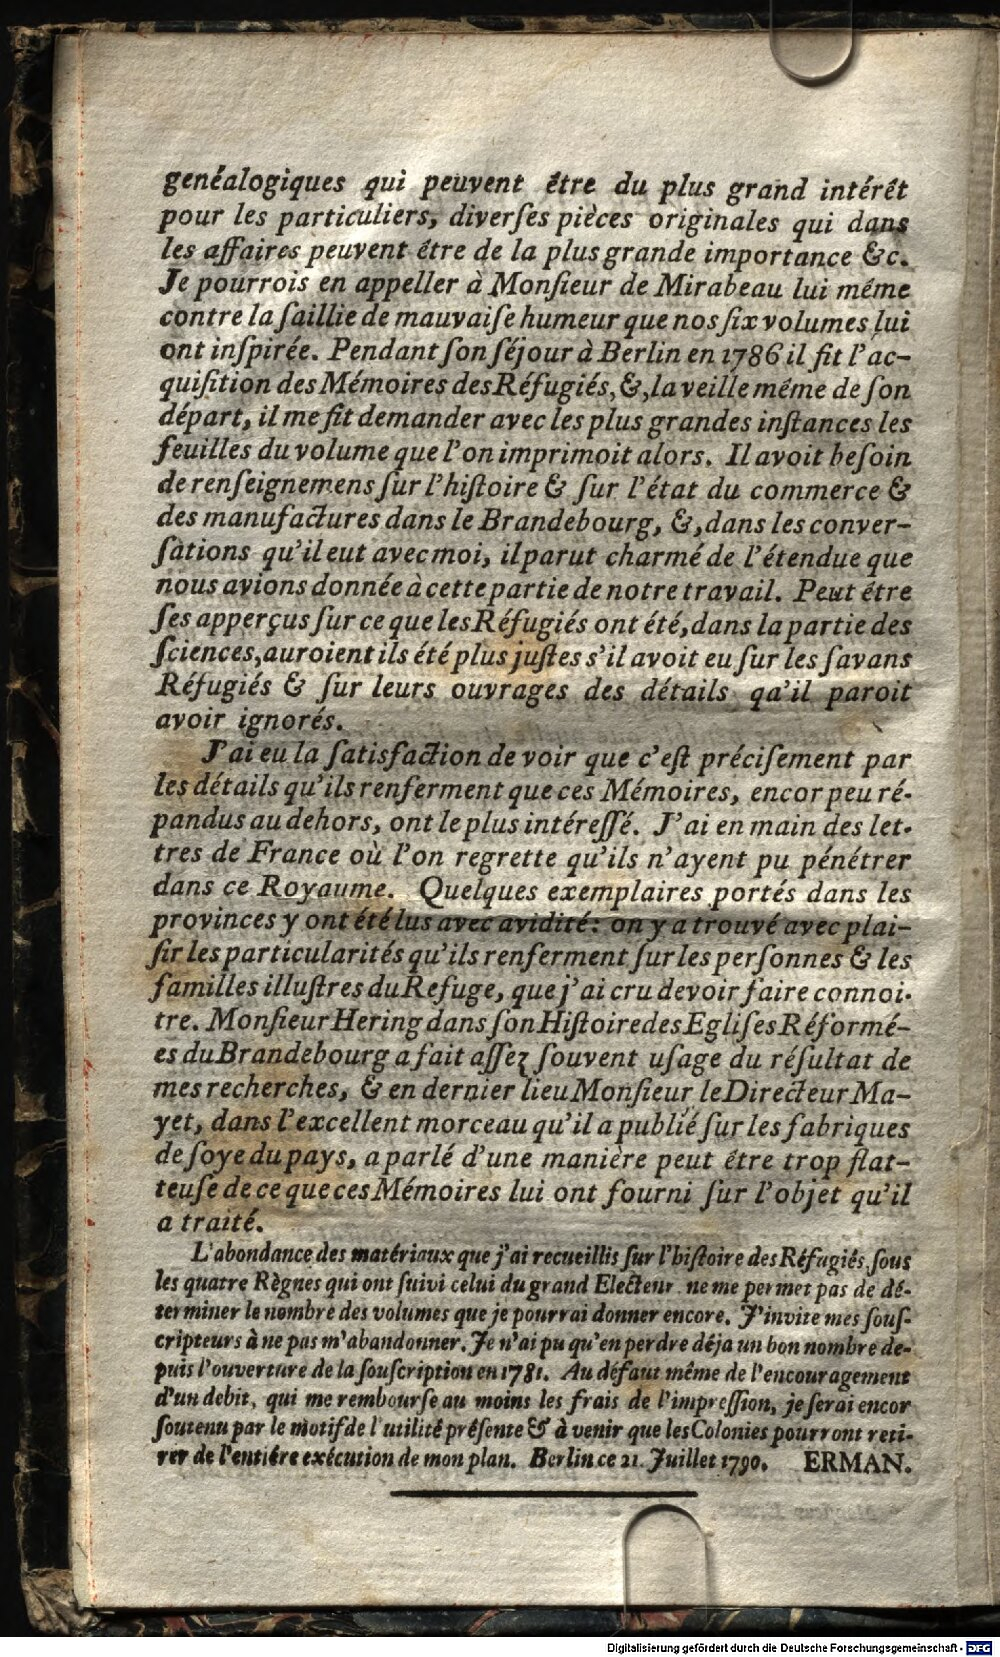 genéalogiques qui peuvent être du plus grand intérêt
pour les particuliers, diverſes pièces originales qui dans
les affaires peuvent être de la plus grande importance &c.
Je pourrois en appeller à Monſieur de Mirabeau lui même
contre la ſaillie de mauvaiſe humeur que nos ſix volumes lui
ont inſpirée. Pendant ſon ſéjour à Berlin en 1786 il fit l'ac-
quiſition des Mémoires des Réfugiés, &, la veille même de ſon
départ, il me fit demander avec les plus grandes inſtances les
feuilles du volume que l'on imprimoit alors. Il avoit beſoin
de renſeignemens ſur l'hiſtoire & ſur l'état du commerce &
des manufactures dans le Brandebourg, &, dans les conver-
ſations qu'il eut avec moi, il parut charmé de l'étendue que
nous avions donnée à cette partie de notre travail. Peut être
ſes apperçus ſur ce que les Réfugiés ont été, dans la partie des
ſciences, auroient ils été plus juſtes s'il avoit eu ſur les ſavans
Réfugiés & ſur leurs ouvrages des détails qa'il paroit
avoir ignorés.
J'ai eu la ſatisfaction de voir que c'eſt préciſement par
les détails qu'ils renferment que ces Mémoires, encor peu ré-
pandus au dehors, ont le plus intéreſſé. J'ai en main des let-
tres de France où l'on regrette qu'ils n'ayent pu pénétrer
dans ce Royaume. Quelques exemplaires portés dans les
provinces y ont été lus avec avidité: on y a trouvé avec plai-
ſir les particularités qu'ils renferment ſur les perſonnes & les
familles illuſtres du Refuge, que j'ai cru devoir faire connoi-
tre. Monſieur Hering dans ſon Hiſtoire des Egliſes Réformé-
es du Brandebourg a fait aſſez ſouvent uſage du réſultat de
mes recherches, & en dernier lieu Monſieur le Directeur Ma-
yet, dans l'excellent morceau qu'il a publié ſur les fabriques
de ſoye du pays, a parlé d'une manière peut être trop flat-
teuſe de ce que ces Mémoires lui ont fourni ſur l'objet qu'il
a traité.
L'abondance des matériaux que j'ai recueillis ſur l'hiſtoire des Réfugiés, ſous
les quatre Règnes qui ont ſuivi celui du grand Electeur ne me permet pas de dé-
terminer le nombre des volumes que je pourrai donner encore. J'invite mes ſouſ-
cripteurs à ne pas m'abandonner. Je n'ai pu qu'en perdre déja un bon nombre de-
puis l'ouverture de la ſouſcription en 1781. Au défaut même de l'encouragement
d'un debit, qui me rembourſe au moins les frais de l'impreſſion, je ſerai encor
ſoutenu par le motif de l'utilité préſente & à venir que les Colonies pourront reti-
rer de l'entiére exécution de mon plan. Berlin ce 21. Juillet 1790. ERMAN.
Digitalisierung gefördert durch die Deutsche Forschungsgemeinschaft - DFG